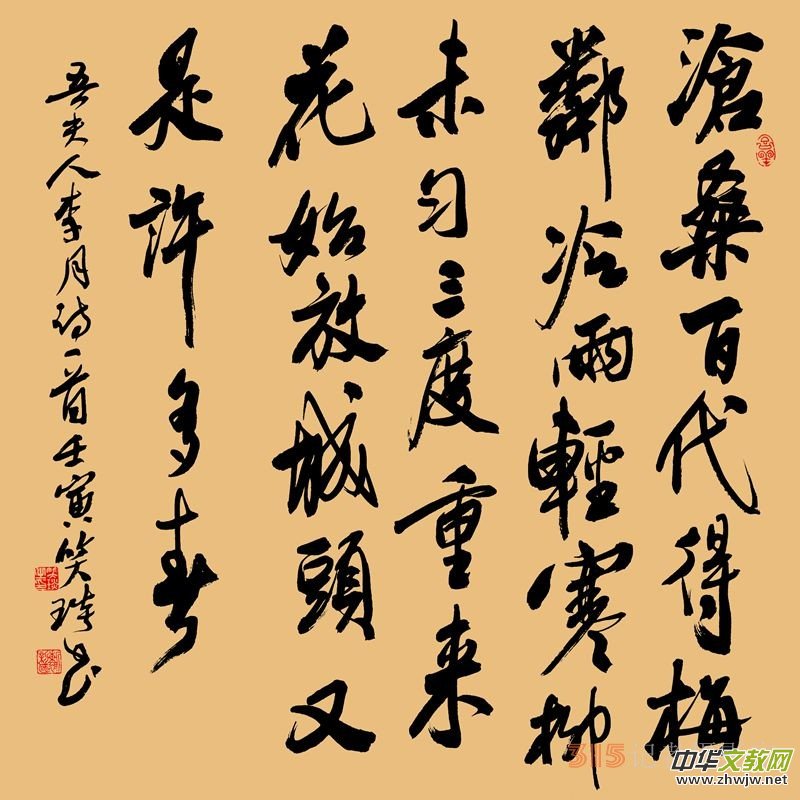 滄桑百代得梅
鄰冷雨輕寒柳
未匀三度重来
花始放城頭又
是許多春
吾夫人李月诗一首壬寅笑书
315记者
中华文教网
www.zhwjw.net